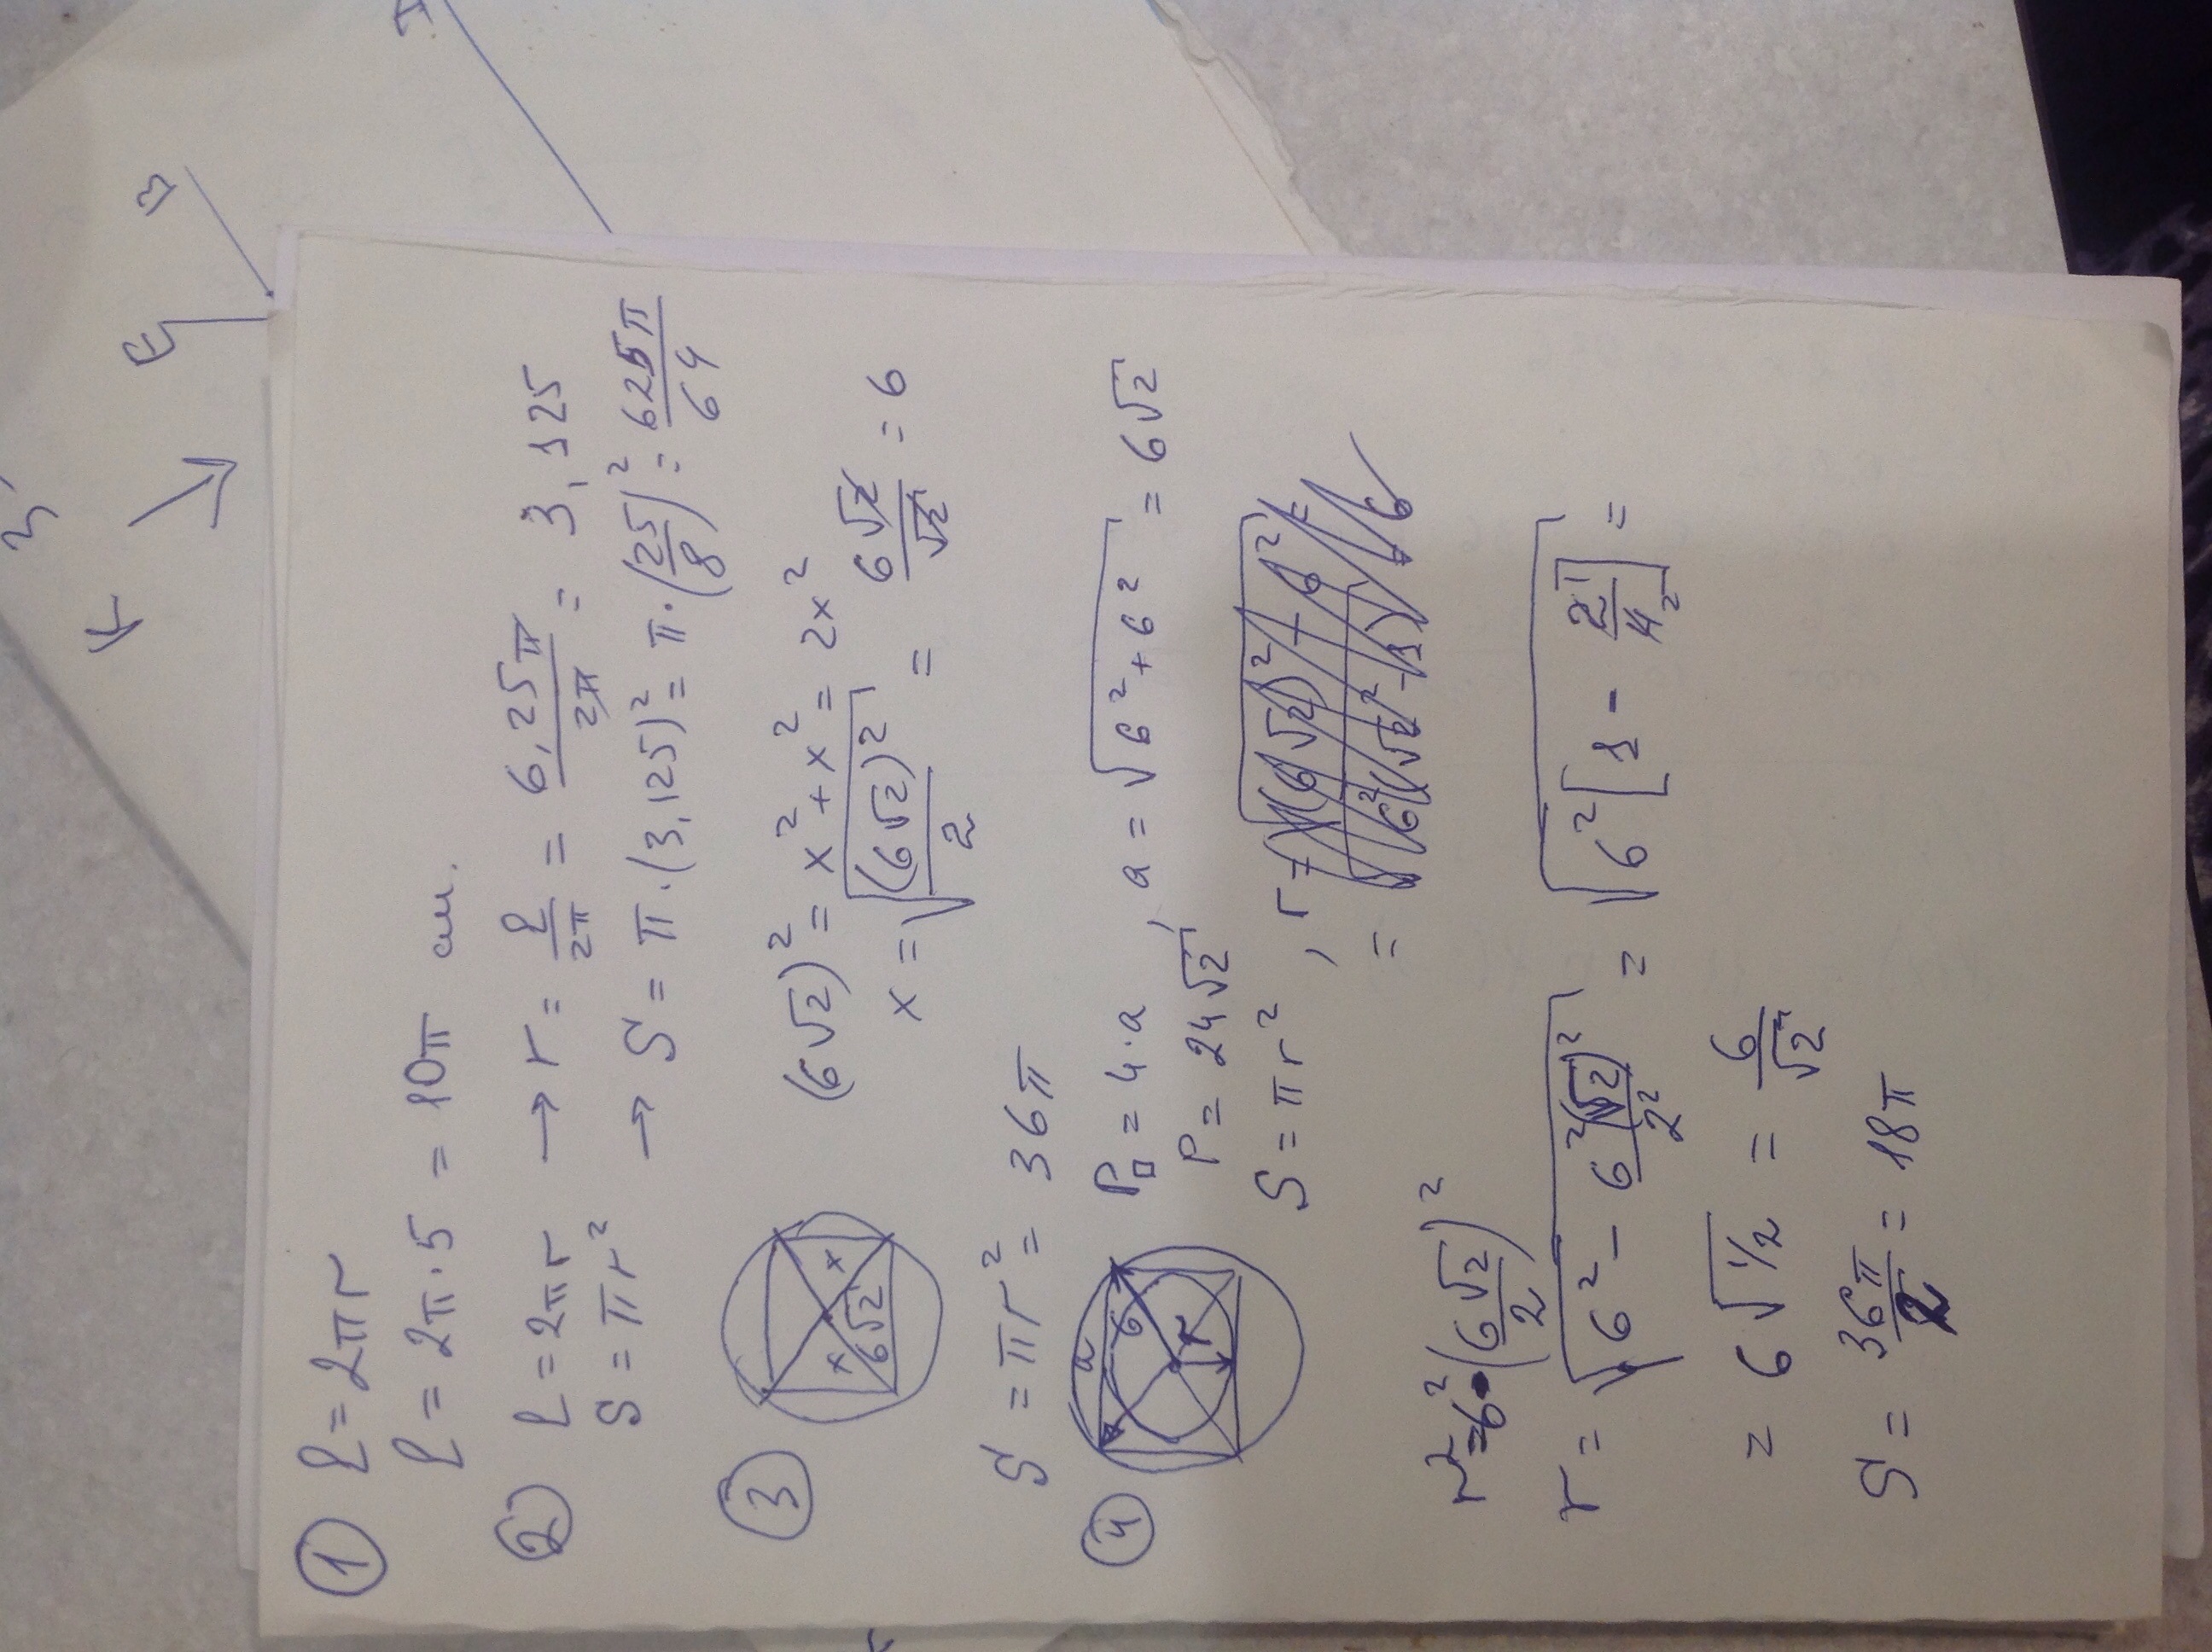 ① l = 2πr
l = 2π·5 = 10π см.
② l = 2πr → r = l/2π = 6,25π/2π = 3,125
S = πr² → S = π·(3,125)² = π·(25/8)² = 625π/64
③ (6√2)² = x² + x² = 2x²
x = √((6√2)²/2) = 6√2/√2 = 6
x x
6√2
S = πr² = 36π
④ P□ = 4·a, a = √(6² + 6²) = 6√2
a
6
r
P = 24√2
S = πr², r =
=
r² = 6² - (6√2/2)²
r = √(6² - 6²(√2)²/2²) = √(6²[1 - 2/4]) =
1
2
= 6√1/2 = 6/√2
S = 36π/2 = 18π
E
B
K